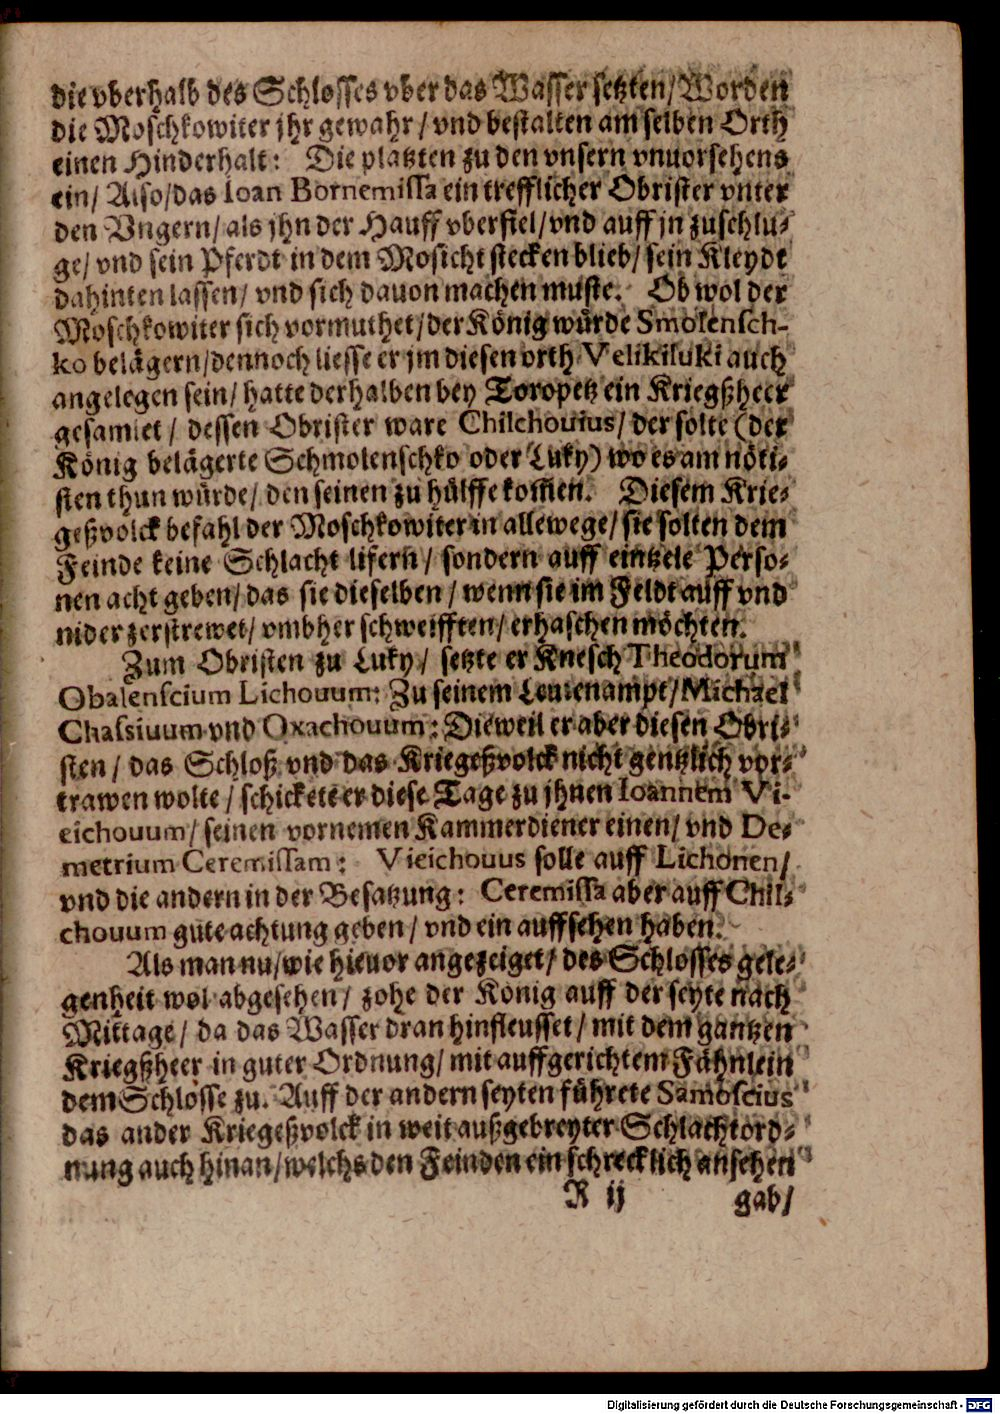 die vberhalb des Schlosses vber das Wasser setzten/ Worden
die Moschkowiter jhr gewahr/ vnd bestalten am selben Orth
einen Hinderhalt: Die platzten zu den vnsern vnuorsehens
ein/ Also/ das Ioan Bornemissa ein trefflicher Obrister vnter
den Vngern/ als jhn der Hauff vberfiel/ vnd auff jn zuschlu-
ge/ vnd sein Pferdt in dem Mosicht stecken blieb/ sein Kleydt
dahinten lassen/ vnd sich dauon machen muste. Ob wol der
Moschkowiter sich vormuthet/ der König würde Smolensch-
ko belägern/ dennoch liesse er jm diesen orth Velikiluki auch
angelegen sein/ hatte derhalben bey Toropetz ein Kriegßheer
gesamlet/ dessen Obrister ware Chilchouius/ der solte (der
König belägerte Schmolenschko oder Luky) wo es am nöti-
sten thun würde/ den seinen zu hülffe kommen. Diesem Krie-
geßvolck befahl der Moschkowiter in allewege/ sie solten dem
Feinde keine Schlacht lifern/ sondern auff eintzele Perso-
nen acht geben/ das sie dieselben/ wenn sie im Feldt auff vnd
nider zerstrewet/ vmbher schweifften/ erhaschen möchten.
Zum Obristen zu Luky/ setzte er Knesch Theodorum
Obalenscium Lichouum: Zu seinem Leutenampt/ Michael
Chassiuum vnd Oxachouum: Dieweil er aber diesen Obri-
sten/ das Schloß vnd das Kriegeßvolck nicht gentzlich vor-
trawen wolte/ schickete er diese Tage zu jhnen Ioannem Vi-
eichouum/ seinen vornemen Kammerdiener einen/ vnd De-
metrium Ceremissam: Vieichouus solle auff Lichonen/
vnd die andern in der Besatzung: Ceremissa aber auff Chil-
chouum gute achtung geben/ vnd ein auffsehen haben.
Als man nu/ wie hieuor angezeiget/ des Schlosses gele-
genheit wol abgesehen/ zohe der König auff der seyte nach
Mittage/ da das Wasser dran hinfleusset/ mit dem gantzen
Kriegßheer in guter Ordnung/ mit auffgerichtem Fähnlein
dem Schlosse zu. Auff der andern seyten führete Samoscius
das ander Kriegeßvolck in weit außgebreyter Schlachtord-
nung auch hinan/ welchs den Feinden ein schrecklich ansehen
R ij gab/
Digitalisierung gefördert durch die Deutsche Forschungsgemeinschaft - DFG